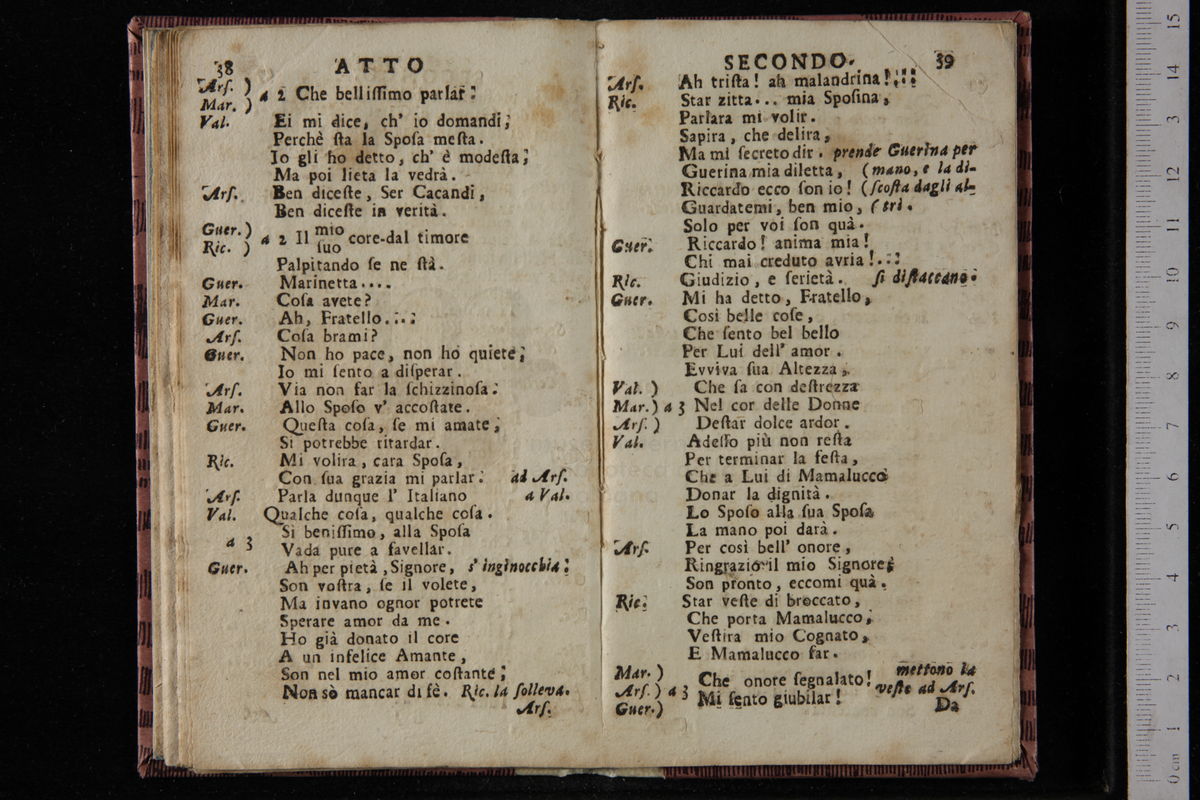 38 ATTO
Arſ. )
Mar. ) a 2 Che belliſſimo parlar!
Val. Ei mi dice, ch' io domandi;
Perchè ſta la Spoſa meſta.
Io gli ho detto, ch' è modeſta;
Ma poi lieta la vedrà.
Arſ. Ben diceſte, Ser Cacandi,
Ben diceſte in verità.
Guer. ) mio
a 2 Il core dal timore
Ric. ) ſuo
Palpitando ſe ne ſtà.
Guer. Marinetta....
Mar. Coſa avete?
Guer. Ah, Fratello...
Arſ. Coſa brami?
Guer. Non ho pace, non ho quiete;
Io mi ſento a diſperar.
Arſ. Via non far la ſchizzinoſa:
Mar. Allo Spoſo v' accoſtate.
Guer. Queſta coſa, ſe mi amate;
Si potrebbe ritardar.
Ric. Mi volira, cara Spoſa,
Con ſua grazia mi parlar: ad Arſ.
Arſ. Parla dunque l' Italiano a Val.
Val. Qualche coſa, qualche coſa.
Si beniſſimo, alla Spoſa
a 3
Vada pure a favellar.
Guer. Ah per pietà, Signore, s' inginocchia:
Son voſtra, ſe il volete,
Ma invano ognor potrete
Sperare amor da me.
Ho già donato il core
A un infelice Amante,
Son nel mio amor coſtante;
Non sò mancar di fè. Ric. la ſolleva.
Arſ.
SECONDO. 39
Arſ. Ah triſta! ah malandrina!...
Ric. Star zitta... mia Spoſina,
Parlara mi volir.
Sapira, che delira,
Ma mi ſecreto dir. prende Guerina per
Guerina mia diletta, (mano, e la di-
Riccardo ecco ſon io! (ſcoſta dagli al-
Guardatemi, ben mio, (tri.
Solo per voi ſon quà.
Guer. Riccardo! anima mia!
Chi mai creduto avria!...
Ric. Giudizio, e ſerietà. ſi diſtaccano.
Guer. Mi ha detto, Fratello,
Così belle coſe,
Che ſento bel bello
Per Lui dell' amor.
Evviva ſua Altezza,
Val. ) Che ſa con deſtrezza
Mar. ) a 3 Nel cor delle Donne
Arſ. ) Deſtar dolce ardor.
Val. Adeſſo più non reſta
Per terminar la feſta,
Che a Lui di Mamalucco
Donar la dignità.
Lo Spoſo alla ſua Spoſa
La mano poi darà.
Arſ. Per così bell' onore,
Ringrazio il mio Signore;
Son pronto, eccomi quà.
Ric. Star veſte di broccato,
Che porta Mamalucco,
Veſtira mio Cognato,
E Mamalucco far.
Mar. ) Che onore ſegnalato! mettono la
Arſ. ) a 3 veſte ad Arſ.
Guer. ) Mi ſento giubilar!
Da